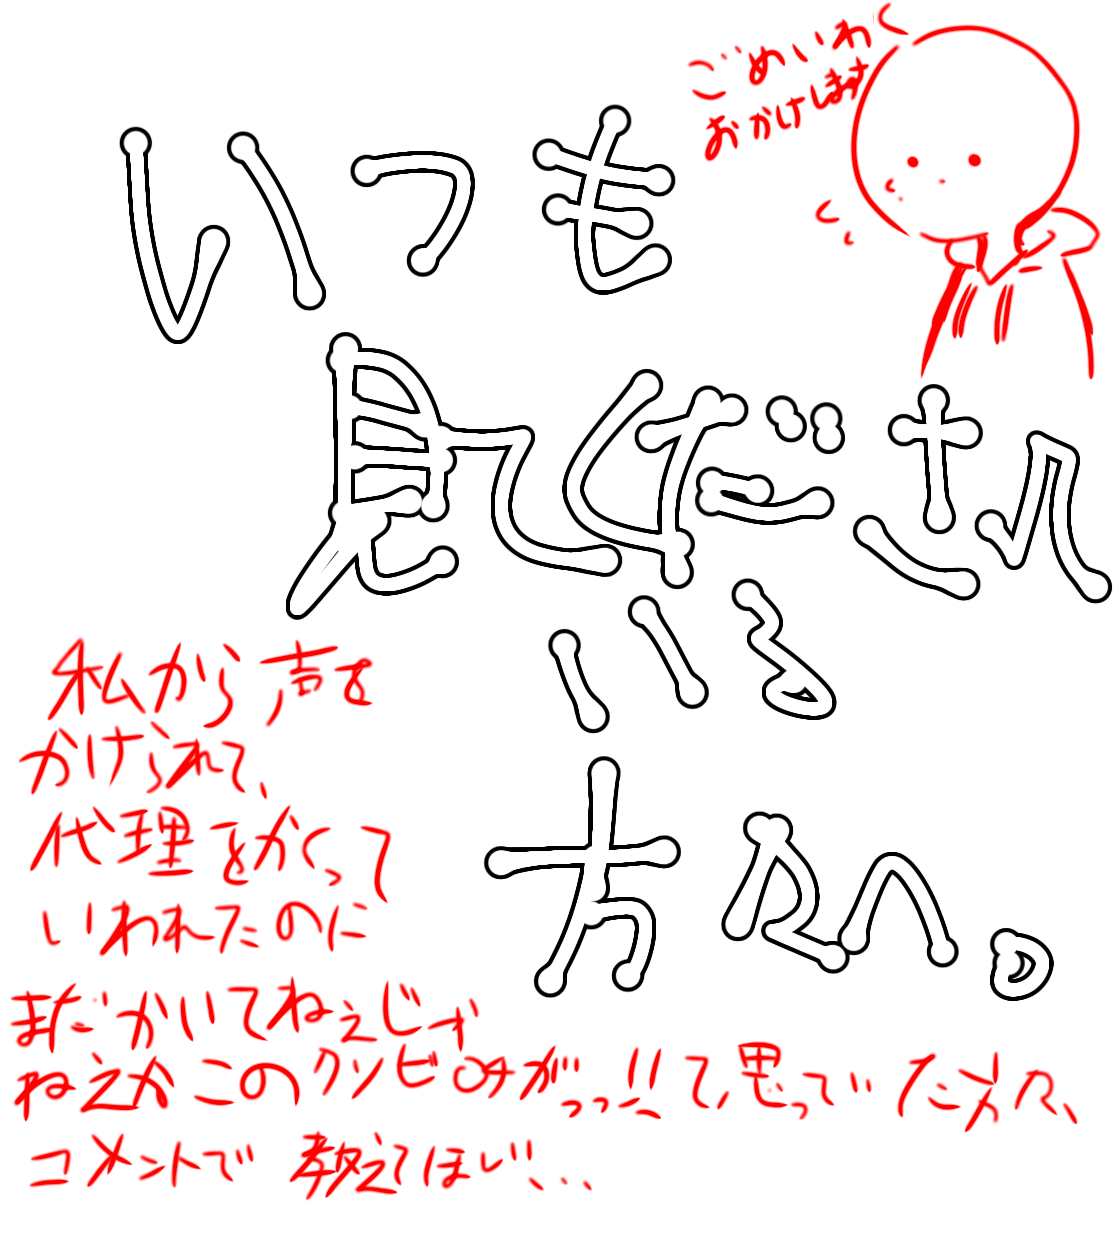 いつも
見てくださっ
ている
方々へ。
ごめいわく
おかけします
私から声を
かけられて、
代理をかくって
いわれたのに
まだかいてねぇじゃ
ねえかこのクソビッチがっっ!!て、思っていた方々、
コメントで教えてほしい...